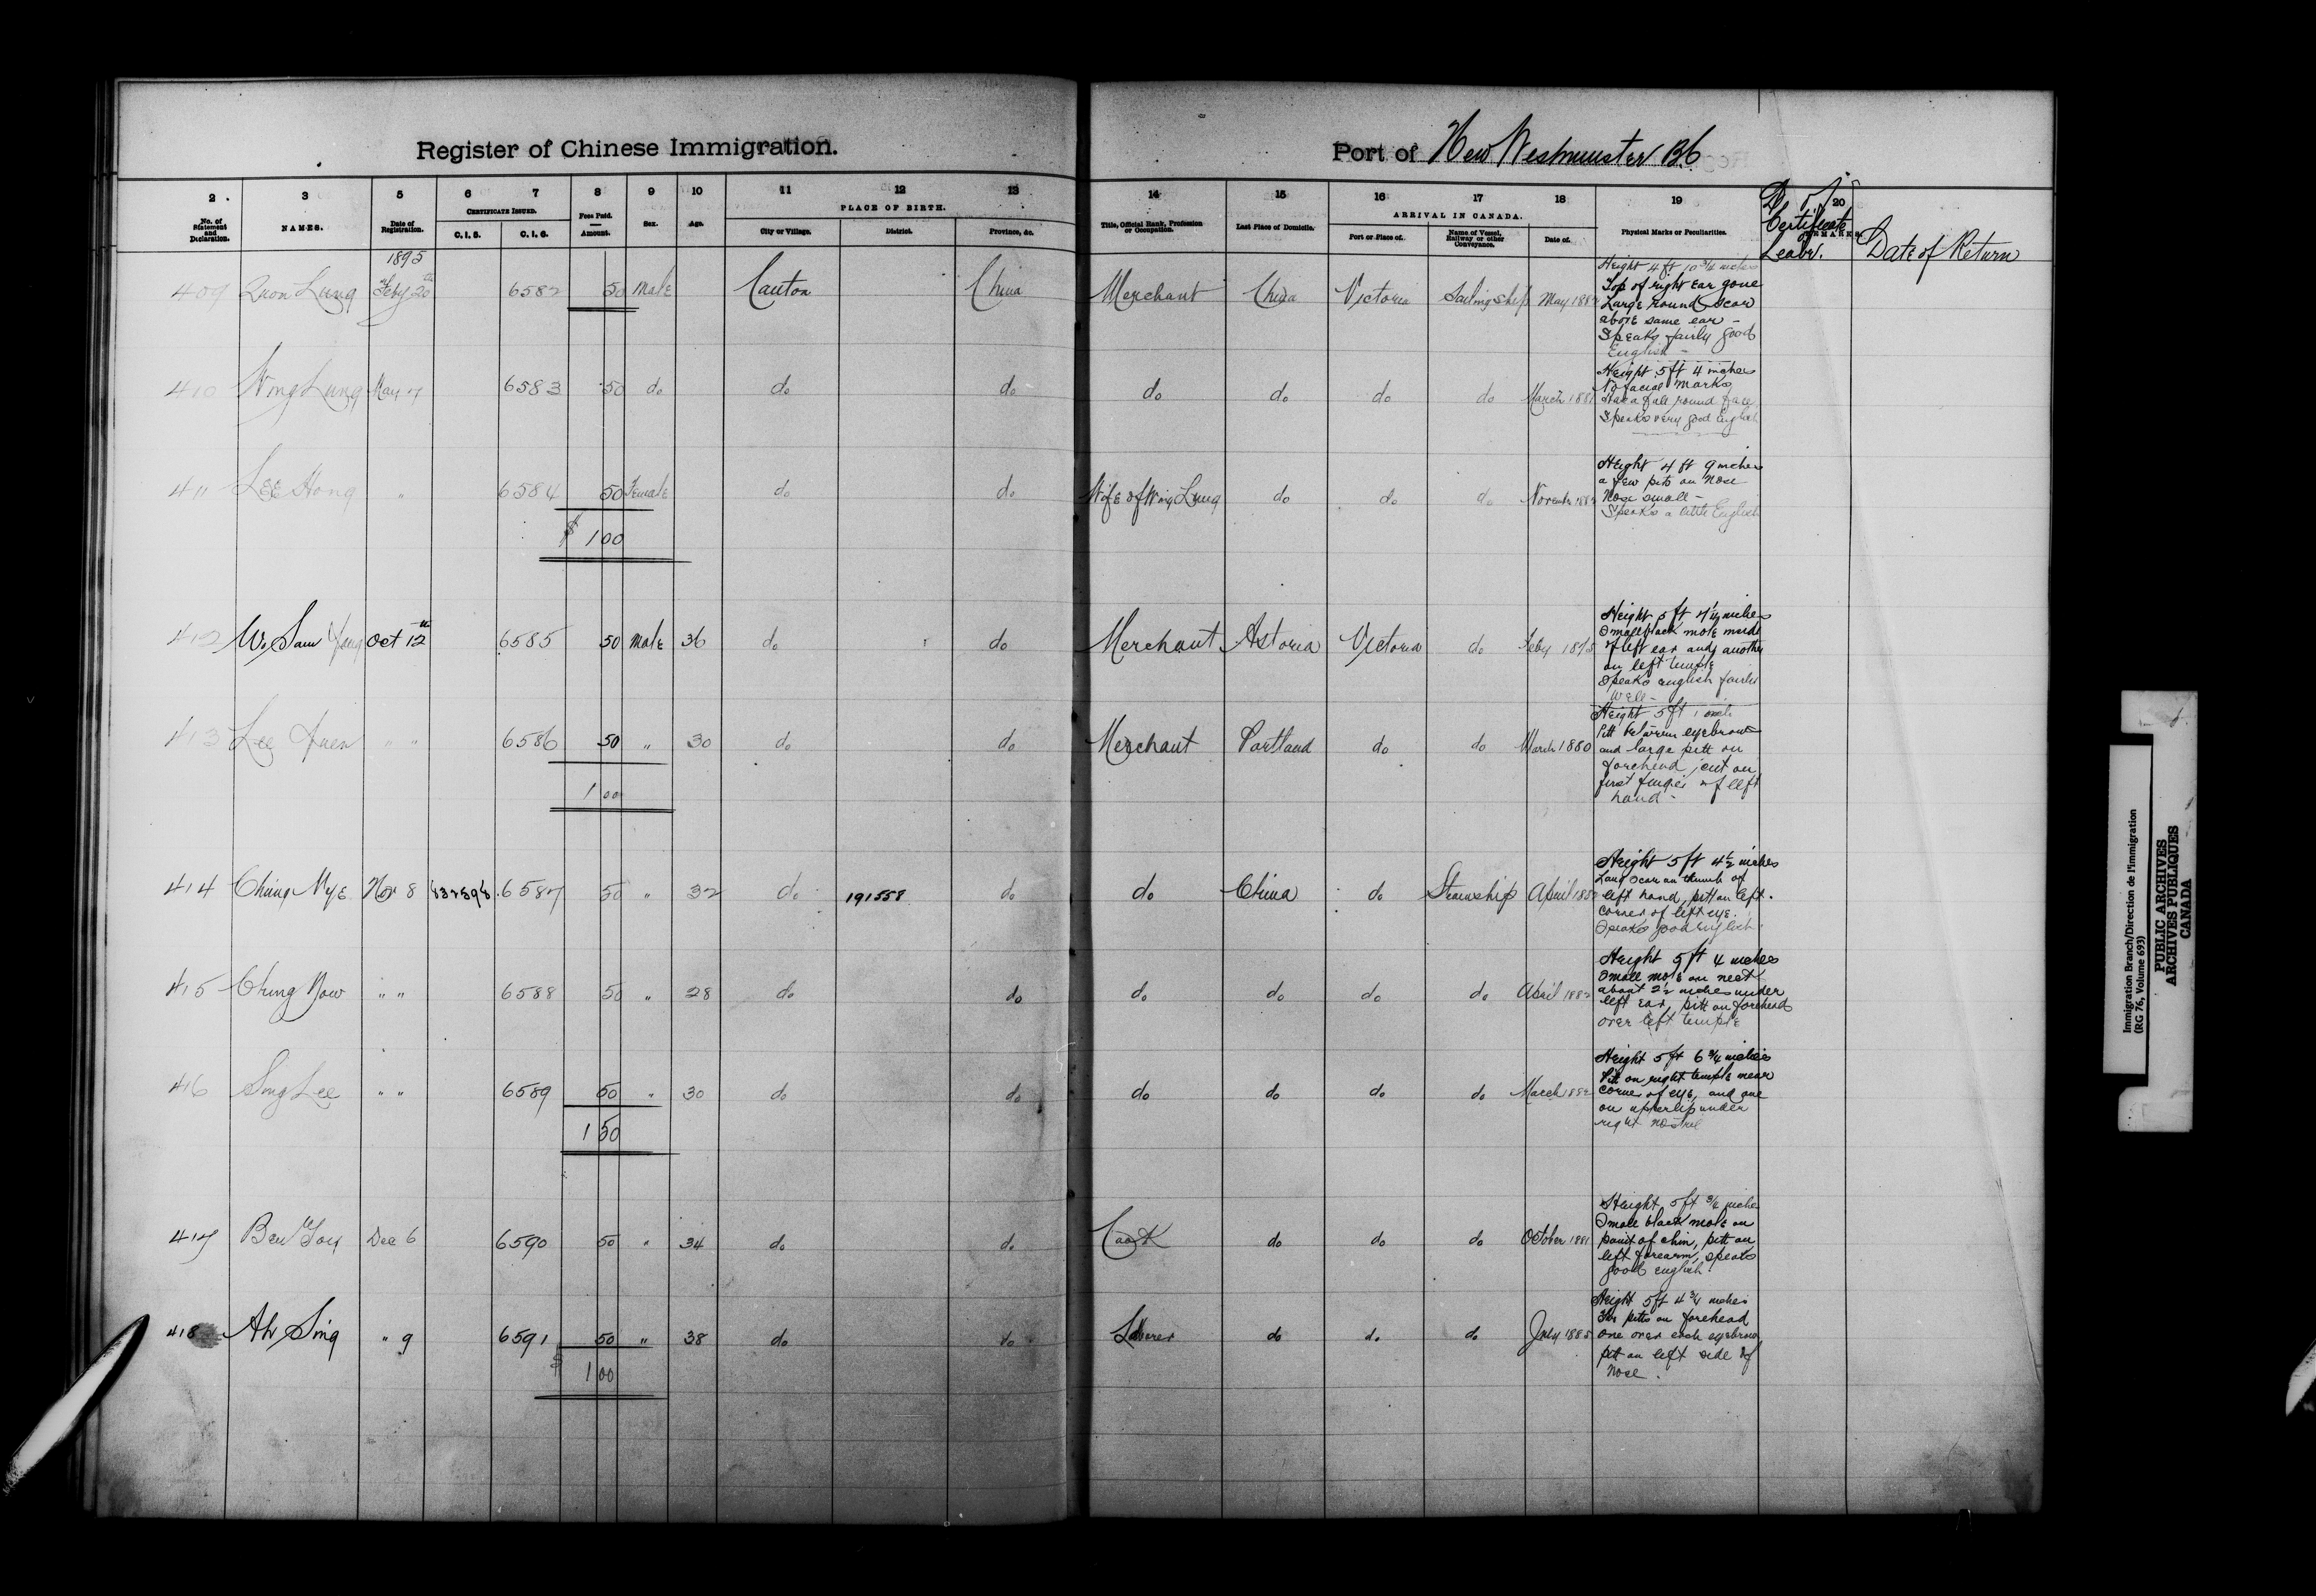 Register of Chinese Immigration.
Port of New Westminster BC
2 3 5 6 7 8 9 10 11 12 13 14 15 16 17 18 19 20
No. of Statement and Declaration. NAMES. Date of Registration. CERTIFICATE ISSUED. C.I.5. C.I.6. Fees Paid. Amount. Sex. Age. PLACE OF BIRTH. City or Village. District. Province, &c.
Title, Official Rank, Profession or Occupation. Last Place of Domicile. ARRIVAL IN CANADA. Port or Place of. Name of Vessel, Railway or other Conveyance. Date of. Physical Marks or Peculiarities. REMARKS.
Certificate
Leave. Date of Return
1895
409 Quon Lung Feby 20th 6582 50 Male Canton China Merchant China Victoria Sailing ship May
Height 4 ft 10 3/4 inches
Top of right Ear gone
Large round Scar
above same ear -
Speaks fairly good
English -
410 Wing Lung May 7 6583 50 do do do do do do do March
Height 5 ft 4 inches
No facial Marks
Has a full round face
Speaks very good English
411 Lee Hong " 6584 50 Female do do Wife of Wing Lung do do do November
Height 4 ft 9 inches
a few pits on Nose
Nose small -
Speaks a little English
$ 100
412 Sam Oct 12th 6585 50 Male 36 do do Merchant Astoria Victoria do Feby
Height 5 ft 4 1/2 inches
Small black mole inside
of left ear and another
on left temple
Speaks english fairly
well -
413 Lee " " 6586 50 " 30 do do Merchant Portland do do March 1880
Height 5 ft 1 inch
Pitt between eyebrows
and large pitt on
forehead, cut on
first finger of left
hand -
100
414 Chung Mye Nov 8 6587 50 " 32 do 191558 do do China do Steamship April
Height 5 ft 4 1/2 inches
Long Scar on thumb of
left hand, pitt on left
corner of left eye.
Speaks good English
415 Chung Now " " 6588 50 " 28 do do do do do do April 1882
Height 5 ft 4 inches
Small mole on neck
about 2 1/2 inches under
left Ear, pitt on forehead
over left temple
416 Sing Lee " " 6589 50 " 30 do do do do do do March
Height 5 ft 6 3/4 inches
Pitt on right temple near
corner of eye, and one
on upper lip under
right nostril
150
417 Dec 6 6590 50 " 34 do do Cook do do do October 1881
Height 5 ft 3/4 inches
Small black mole on
point of chin, pitt on
left forearm, speaks
good english
418 Ah Sing " 9 6591 50 " 38 do do Laborer do do do July 1885
Height 5 ft 4 3/4 inches
pitts on forehead
one over each eyebrow
pitt on left side of
nose.
$ 100
Immigration Branch/Direction de l'immigration
(RG 76, Volume 693)
PUBLIC ARCHIVES
ARCHIVES PUBLIQUES
CANADA